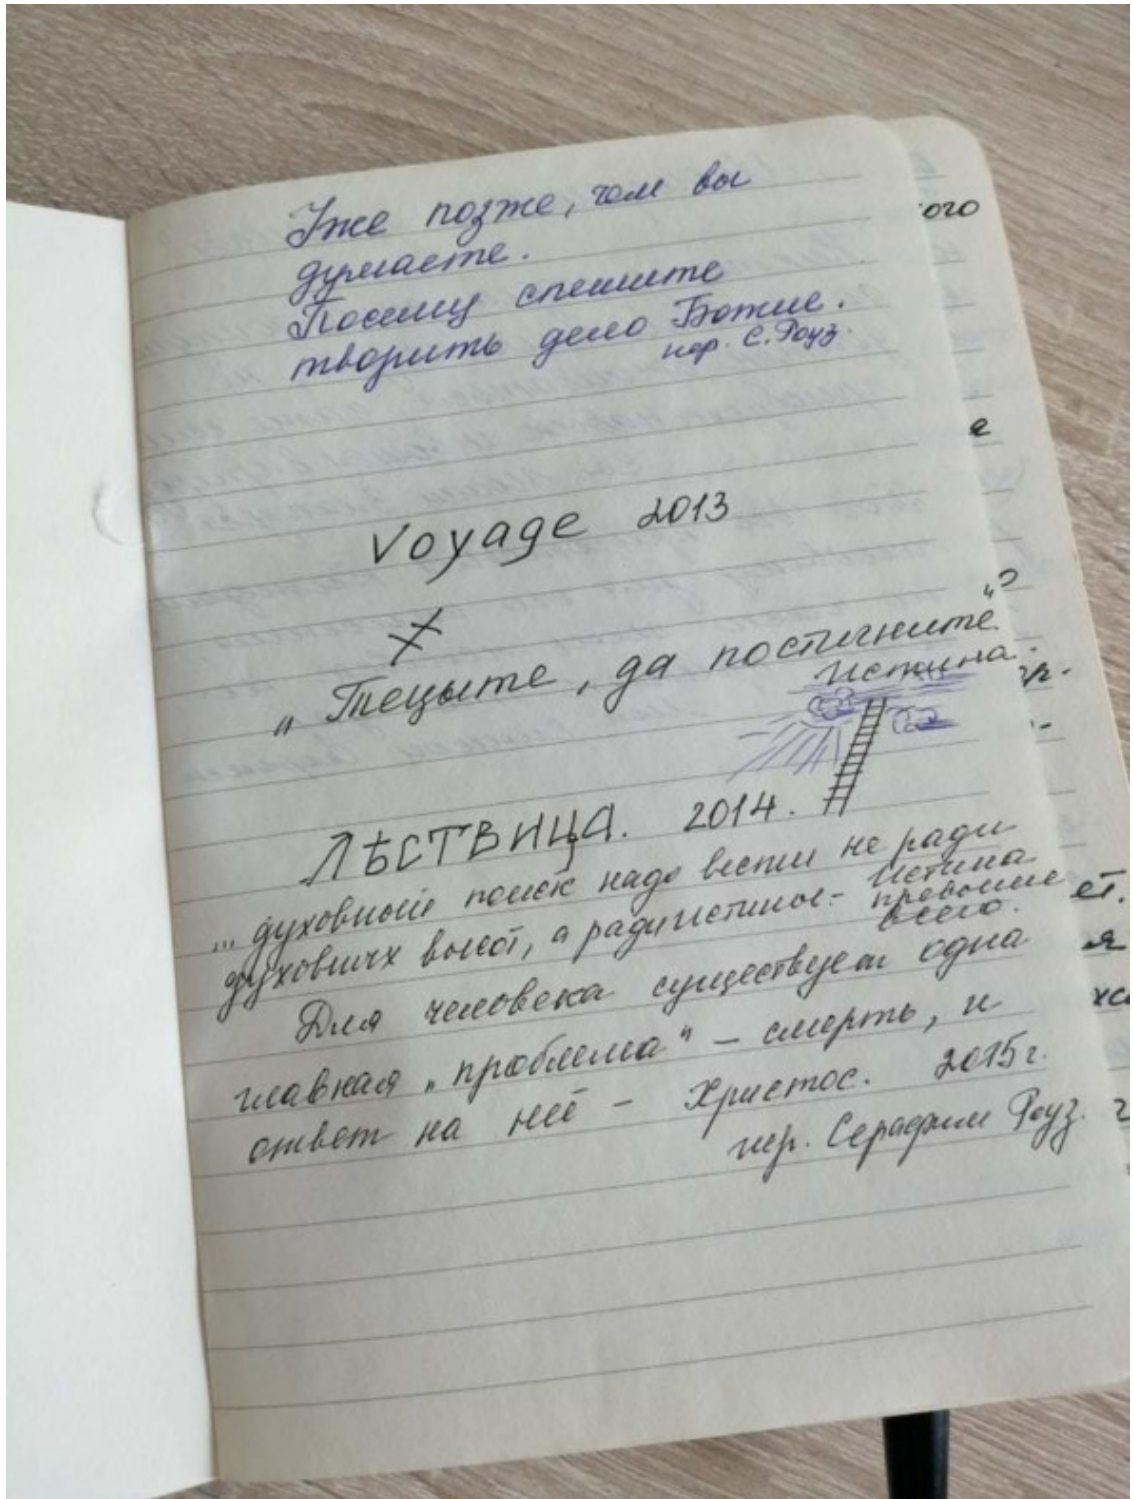 Уже позже, чем вы
думаете.
Посему спешите
творить дело Божие.
иер. С. Роуз.
Voyage 2013
„Тецыте, да постигните"
Истина.
ЛѢСТВИЦА. 2014.
... духовный поиск надо вести не ради
духовных высот, а ради истины.- Истина
превыше
всего.
Для человека существует одна
главная „проблема" – смерть, и
ответ на неё – Христос. 2015г.
иер. Серафим Роуз.
ого
я
ет.
я